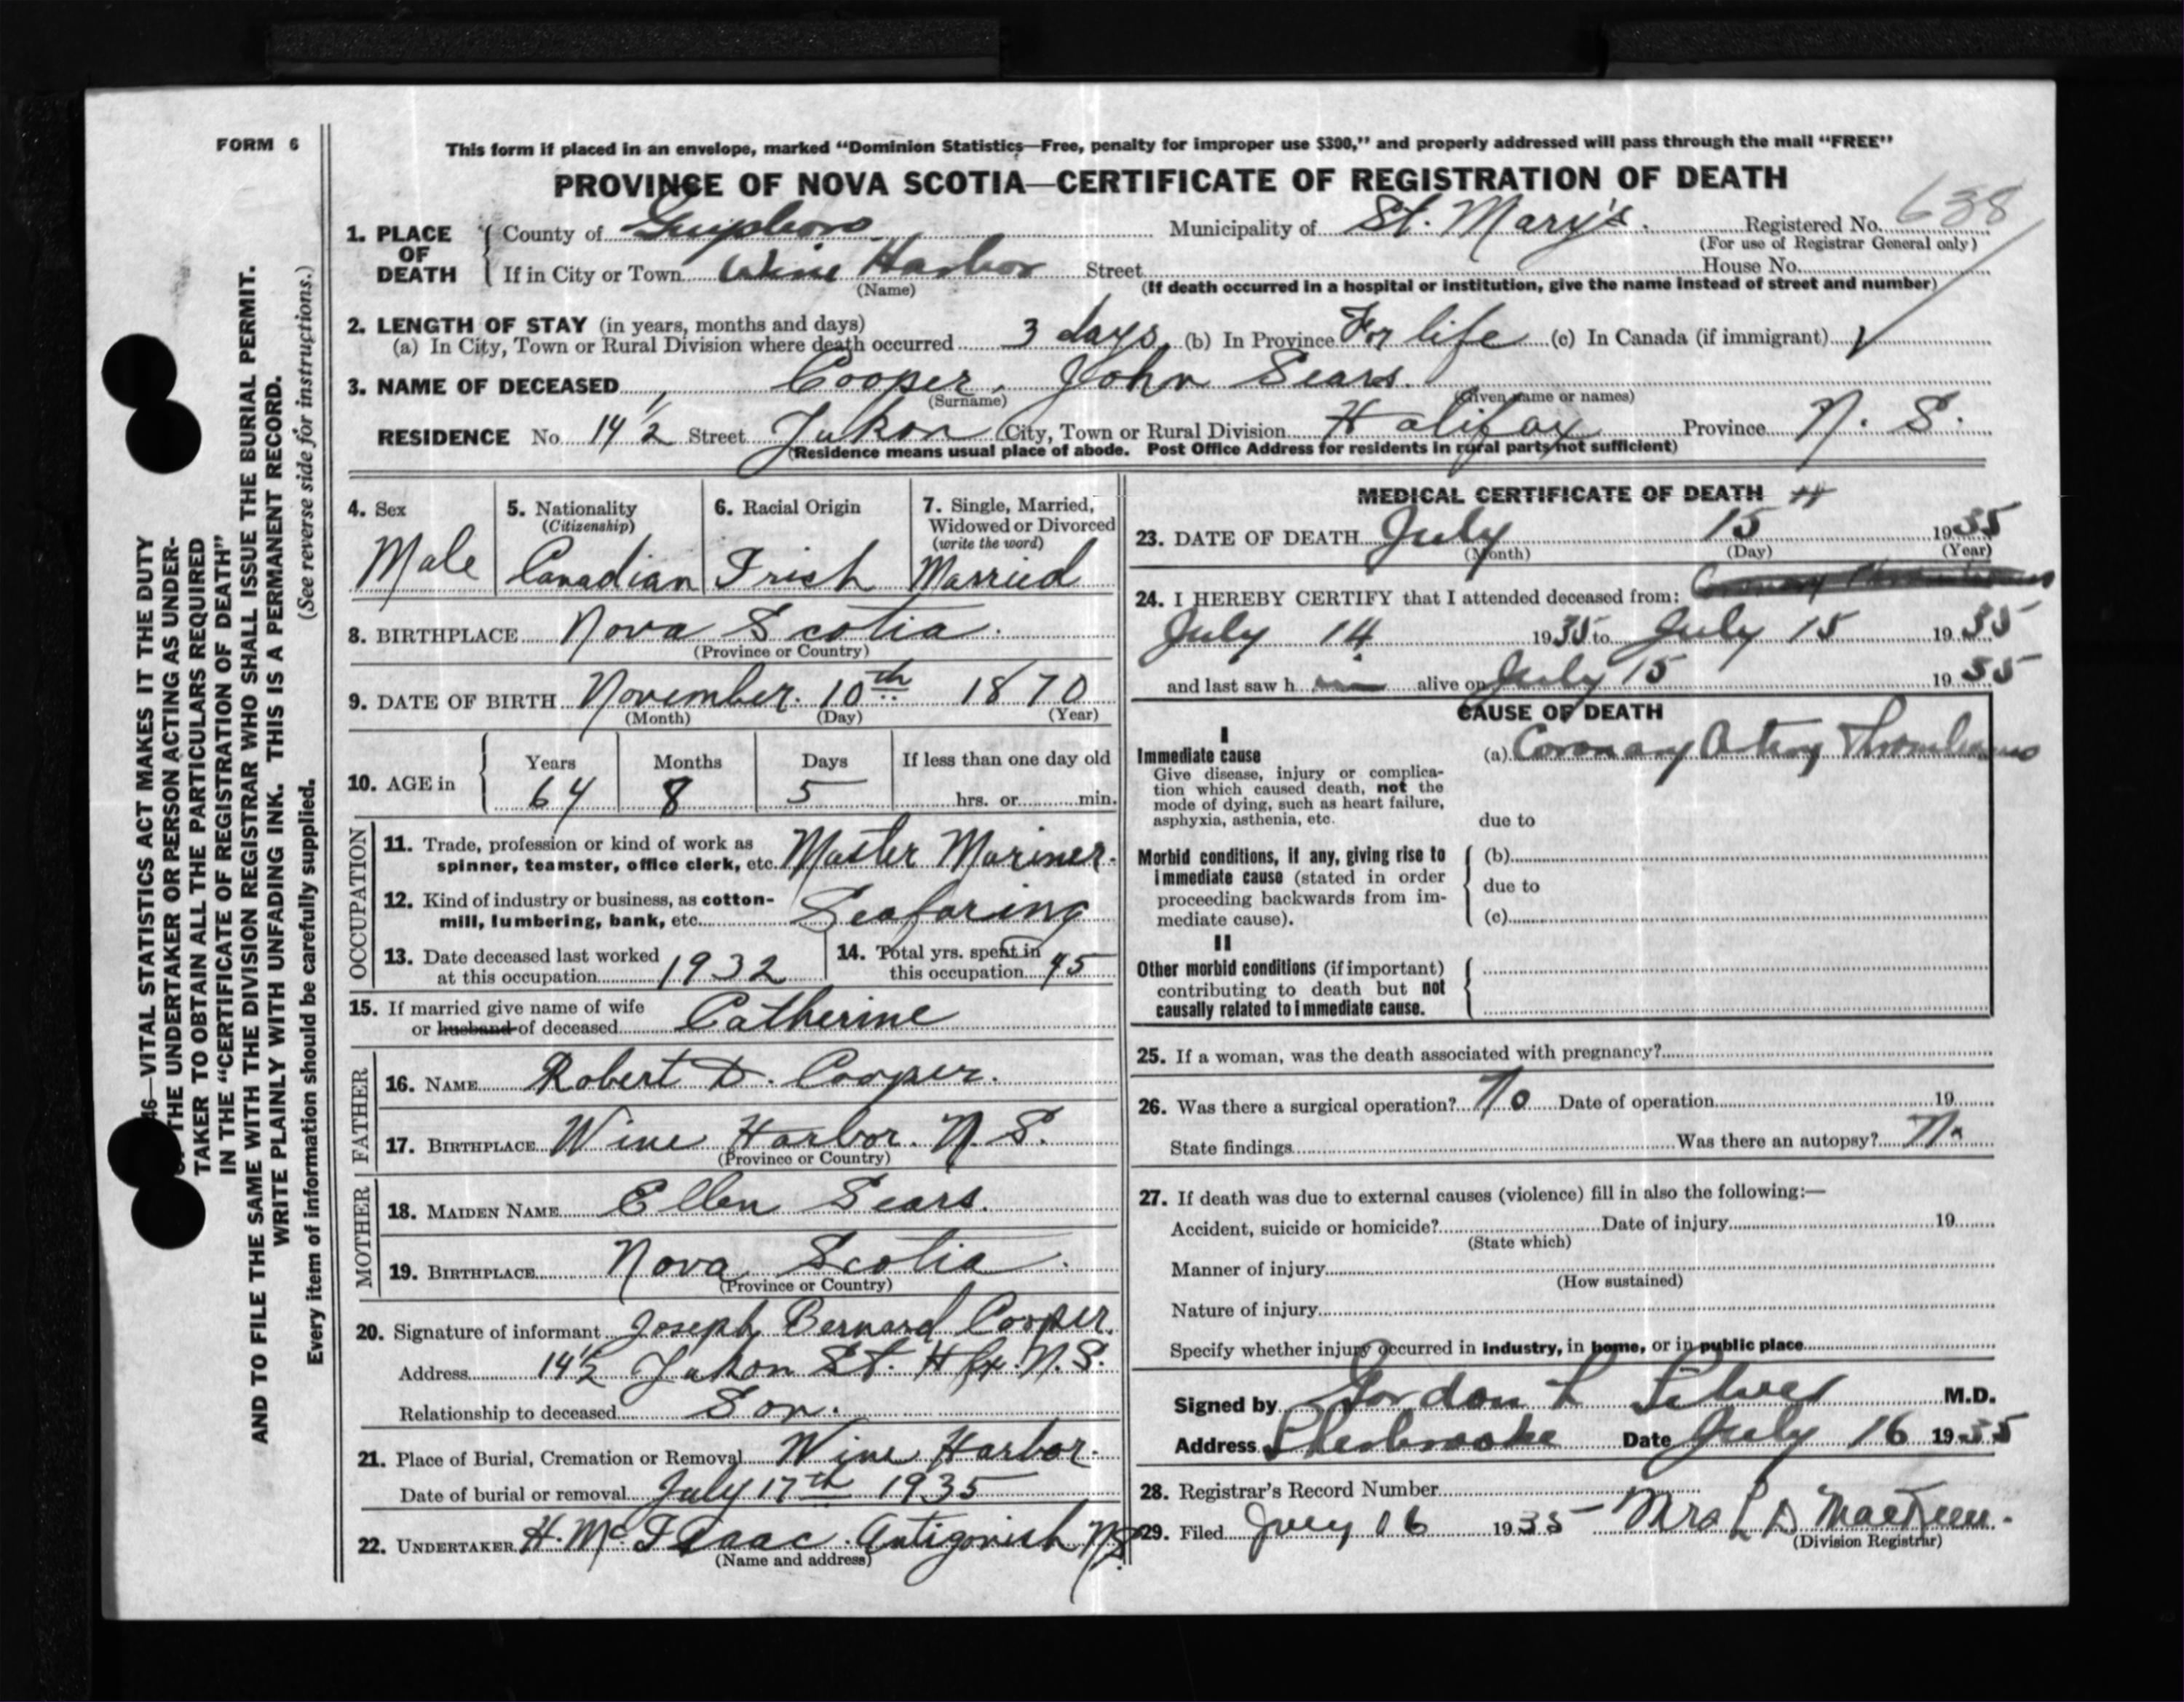 FORM 6
This form if placed in an envelope, marked “Dominion Statistics—Free, penalty for improper use $300,” and properly addressed will pass through the mail “FREE”
PROVINCE OF NOVA SCOTIA—CERTIFICATE OF REGISTRATION OF DEATH
1. PLACE OF DEATH { County of Guysboro Municipality of St. Mary's. Registered No. 638
(For use of Registrar General only)
If in City or Town Wine Harbor Street House No.
(Name) (If death occurred in a hospital or institution, give the name instead of street and number)
2. LENGTH OF STAY (in years, months and days)
(a) In City, Town or Rural Division where death occurred 3 days (b) In Province For life (c) In Canada (if immigrant) ✓
3. NAME OF DECEASED Cooper, John Sears.
(Surname) (Given name or names)
RESIDENCE No. 14 1/2 Street Yukon City, Town or Rural Division Halifax Province N. S.
(Residence means usual place of abode. Post Office Address for residents in rural parts not sufficient)
4. Sex 5. Nationality (Citizenship) 6. Racial Origin 7. Single, Married, Widowed or Divorced (write the word)
Male Canadian Irish Married
8. BIRTHPLACE Nova Scotia.
(Province or Country)
9. DATE OF BIRTH November. 10th 1870
(Month) (Day) (Year)
10. AGE in { Years Months Days If less than one day old
64 8 5 hrs. or min.
OCCUPATION
11. Trade, profession or kind of work as
spinner, teamster, office clerk, etc. Master Mariner.
12. Kind of industry or business, as cotton-
mill, lumbering, bank, etc. Seafaring
13. Date deceased last worked
at this occupation 1932
14. Total yrs. spent in
this occupation 45
15. If married give name of wife
or husband of deceased Catherine
FATHER
16. NAME Robert D. Cooper.
17. BIRTHPLACE Wine Harbor. N. S.
(Province or Country)
MOTHER
18. MAIDEN NAME Ellen Sears.
19. BIRTHPLACE Nova Scotia.
(Province or Country)
20. Signature of informant Joseph Bernard Cooper.
Address 14 1/2 Yukon St. Hfx. N. S.
Relationship to deceased Son.
21. Place of Burial, Cremation or Removal Wine Harbor.
Date of burial or removal July 17th 1935
22. UNDERTAKER H. McIsaac. Antigonish N.S.
(Name and address)
MEDICAL CERTIFICATE OF DEATH
23. DATE OF DEATH July 15th 1935
(Month) (Day) (Year)
24. I HEREBY CERTIFY that I attended deceased from:
July 14 1935 to July 15 1935
and last saw h im alive on July 15 1935
CAUSE OF DEATH
I
Immediate cause (a) Coronary Artery Thrombosis
Give disease, injury or complica-
tion which caused death, not the
mode of dying, such as heart failure,
asphyxia, asthenia, etc. due to
Morbid conditions, if any, giving rise to { (b)
immediate cause (stated in order due to
proceeding backwards from im-
mediate cause). (c)
II
Other morbid conditions (if important)
contributing to death but not
causally related to immediate cause.
25. If a woman, was the death associated with pregnancy?
26. Was there a surgical operation? No Date of operation 19
State findings Was there an autopsy? No
27. If death was due to external causes (violence) fill in also the following:—
Accident, suicide or homicide? Date of injury 19
(State which)
Manner of injury
(How sustained)
Nature of injury
Specify whether injury occurred in industry, in home, or in public place
Signed by Gordon L Silver M.D.
Address Sherbrooke Date July 16 1935
28. Registrar's Record Number
29. Filed July 16 1935 Mrs L D
(Division Registrar)
46—VITAL STATISTICS ACT MAKES IT THE DUTY
THE UNDERTAKER OR PERSON ACTING AS UNDER-
TAKER TO OBTAIN ALL THE PARTICULARS REQUIRED
IN THE “CERTIFICATE OF REGISTRATION OF DEATH”
AND TO FILE THE SAME WITH THE DIVISION REGISTRAR WHO SHALL ISSUE THE BURIAL PERMIT.
WRITE PLAINLY WITH UNFADING INK. THIS IS A PERMANENT RECORD.
Every item of information should be carefully supplied. (See reverse side for instructions.)